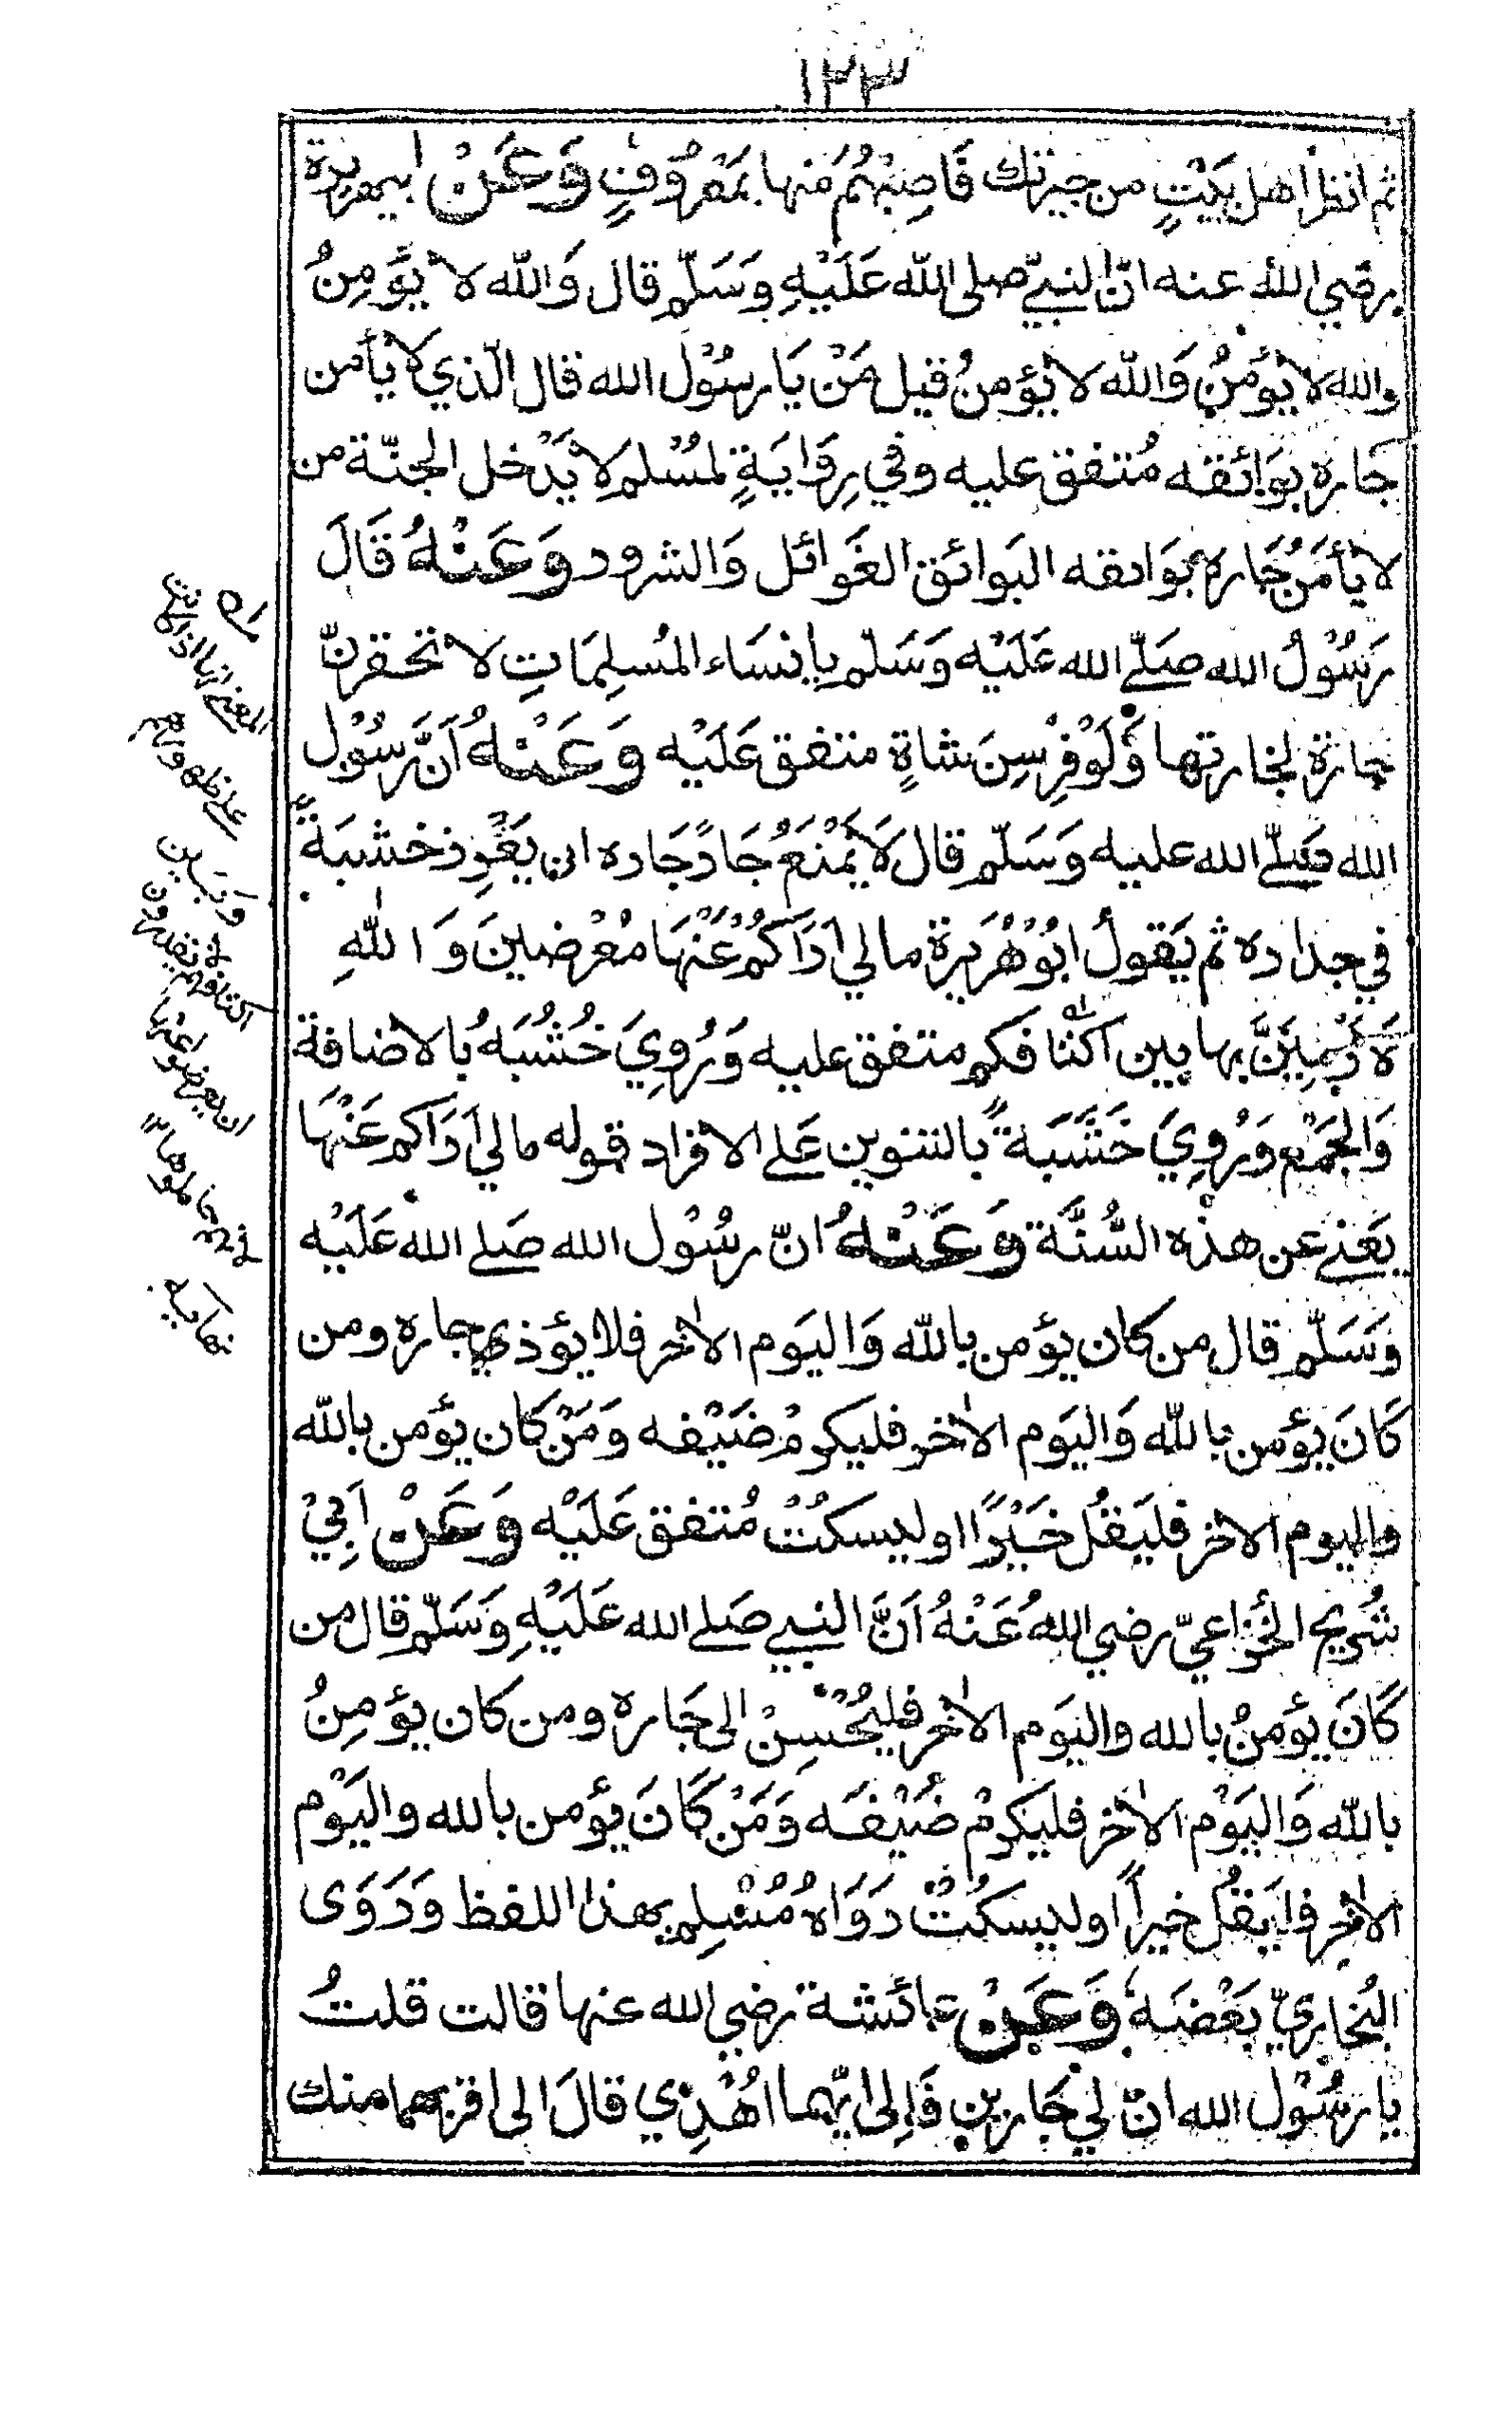 ١٢٣
ثم انظر اهل بَيْتٍ من جيرتك فَاصِبْهُم مّنها بمَعْرُوفٍ وَعَنْ ابيهريرة
رضي الله عنه انّ النبيّ صلى الله عَلَيْهِ وَسَلّم قال وَالله لا يُؤمِنُ
والله لا يُؤمنُ وَالله لا يُؤمنُ قيل مَنْ يَا رسُوْل الله قال الّذي لا يأمن
جَاره بوَائقه مُتفق عليه وفي رِوَايَةٍ لمُسْلم لا يَدْخل الجنّة من
لا يأمَنُ جَاره بوائقه البَوائق الغَوائل وَالشرور وَعَنْهُ قَالَ
رَسُوْلُ الله صَلّے الله عَلَيْه وَسَلّم يا نسَاء المُسلِمَاتِ لا تحقرنّ
جارة لجارتها وَلَوْ فِرْسِنَ شاةٍ متفق عَلَيْه وَعَنْهُ اَنّ رَسُوْل
الله صَلّے الله عليه وَسَلّم قال لَا يَمْنَعُ جَارٌ جَاره ان يَغْرِز خشبَةً
في جداره ثم يَقولُ ابُوْ هُرَيرة مالي اَرَاكُمْ عَنْهَا مُعْرضينَ وَاللهِ
لَاَرْمِيَنَّ بها بين اكتافكم متفق عليه وَرُوِيَ خُشُبَهُ بالاضافة
وَالجَمْع وَرُوِيَ خَشَبَةً بالتنوين عَلى الافراد قوله مالي اَرَاكم عَنْهَا
يَعْنے عن هذه السُّنَّة وَعَنْهُ انّ رسُوْل الله صَلے الله عَلَيْه
وَسَلّم قال من كان يؤمن بالله وَاليَوم الاخر فلا يؤذي جاره ومن
كَانَ يؤمن بالله وَاليَوم الاخر فليكرمْ ضَيْفه وَمَنْ كان يؤمن بالله
واليوم الاخر فليَقُلْ خَيْرًا او ليسكُتْ مُتفق عَلَيْه وَعَنْ اَبِيْ
شُرَيح الخُزاعيّ رضي اللهُ عَنْهُ اَنَّ النبيے صَلے الله عَلَيْهِ وَسَلّم قال من
كَانَ يؤمنُ بالله واليَوم الاخر فليُحْسِنْ الى جَاره ومن كان يؤمِنُ
بالله وَاليَوْم الاخر فليكرمْ ضَيْفَه وَمَنْ كَانَ يؤمن بالله واليَوْم
الاخِر فليَقُلْ خيراً او ليسكُتْ رَوَاهُ مُسْلِم بهذا اللفظ وَرَوَى
البُخاريّ بَعْضَهُ وَعَنْ عائشة رضي الله عنها قالت قلتُ
يا رسُوْل الله انّ لي جَارين فَاِلى ايّهما اُهْدِي قالَ الى اقربهما منك